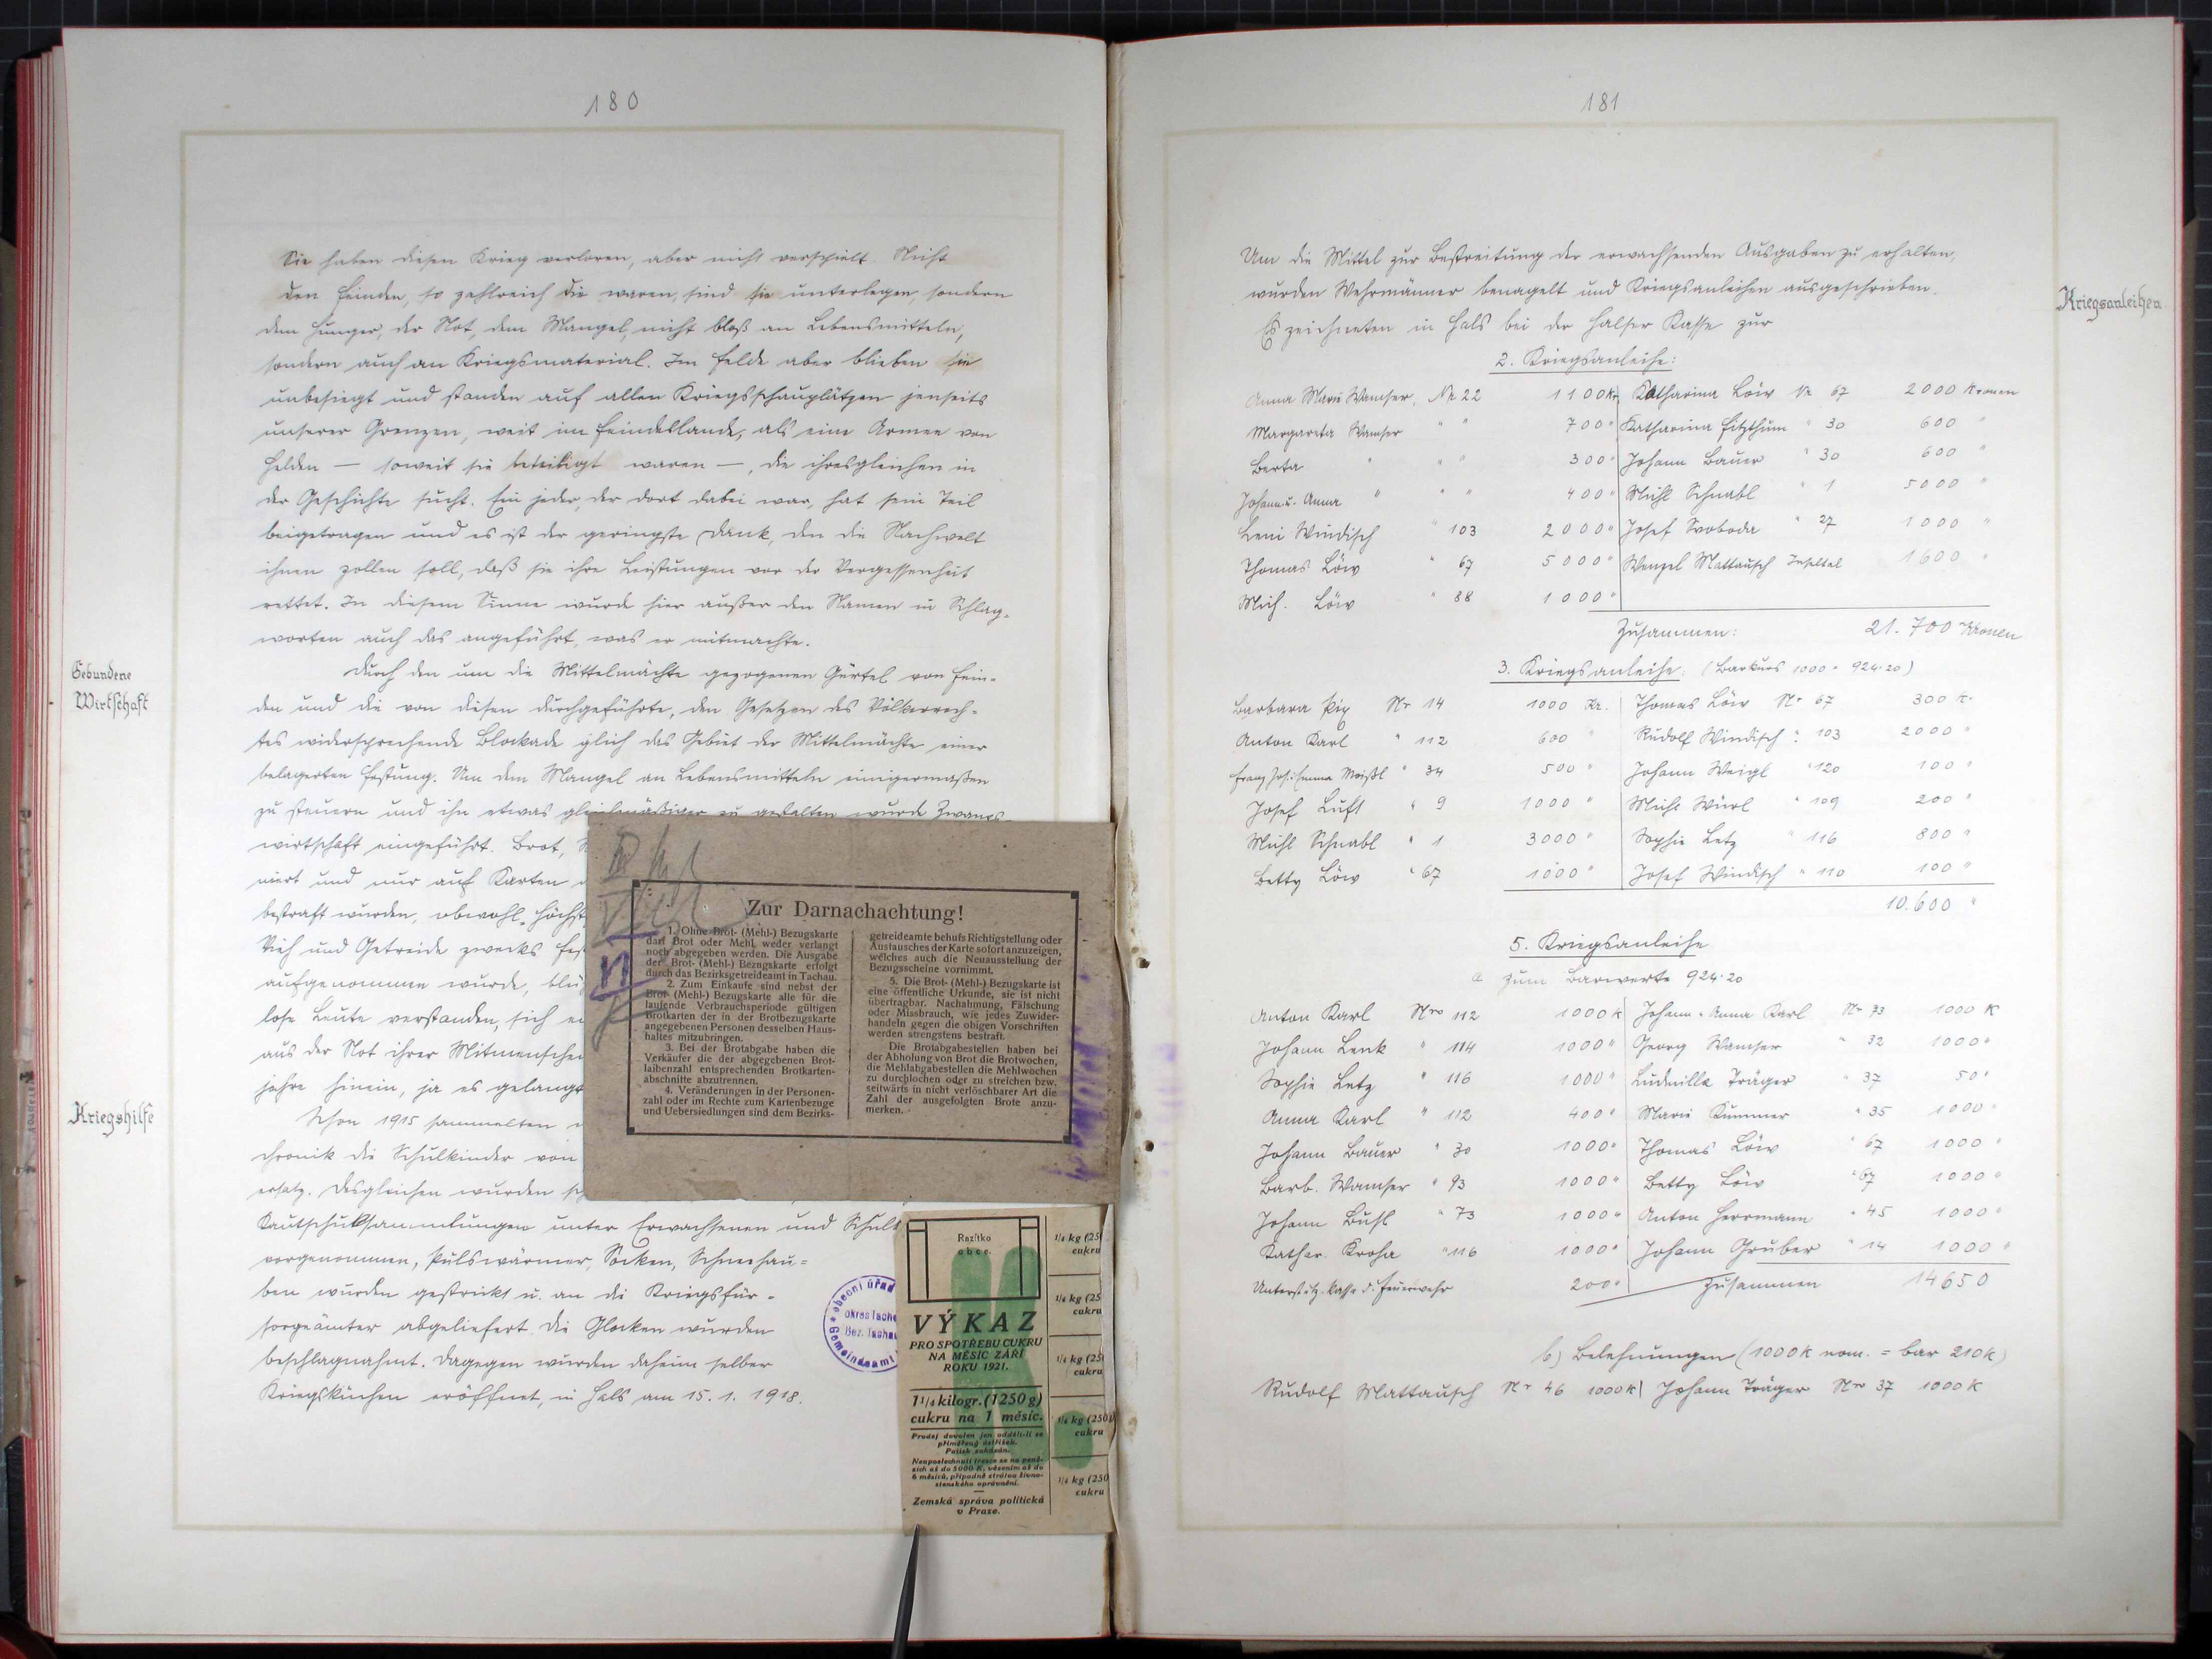 180
Sie haben diesen Krieg verloren, aber nicht verspielt. Nicht
den Feinden, so zahlreich die waren, sind sie unterlegen, sondern
dem Hunger, der Not, dem Mangel, nicht bloß an Lebensmitteln,
sondern auch an Kriegsmaterial. Im Felde aber blieben sie
unbesiegt und standen auf allen Kriegsschauplätzen jenseits
unserer Grenzen, weit im Feindeslande, als eine Armee von
Helden — soweit sie beteiligt waren —, die ihresgleichen in
der Geschichte sucht. Ein jeder, der dort dabei war, hat sein Teil
beigetragen und es ist der geringste Dank, den die Nachwelt
ihnen zollen soll, daß sie ihre Leistungen vor der Vergessenheit
rettet. In diesem Sinne wurde hier außer den Namen in Schlag-
worten auch das angeführt, was er mitmachte.
Gebundene
Wirtschaft
Durch den um die Mittelmächte gezogenen Gürtel von Fein-
den und die von diesen durchgeführte, den Gesetzen des Völkerrech-
tes widersprechende Blockade glich das Gebiet der Mittelmächte einer
belagerten Festung. Um dem Mangel an Lebensmitteln einigermaßen
zu steuern und ihn etwas gleichmäßiger zu gestalten wurde Zwangs-
wirtschaft eingeführt. Brot,
niert und nur auf Karten
bestraft wurden, obwohl Höchst
Vieh und Getreide zwecks
aufgenommen wurde,
lose Leute verstanden, sich
aus der Not ihrer Mitmenschen
jahre hinein, ja es gelangt
Kriegshilfe
Schon 1915 sammelten
chronik die Schulkinder von
ersatz. Desgleichen wurden
Kautschuksammlungen unter Erwachsenen und Schul
vorgenommen, Pulswärmer, Socken, Schneehau-
ben wurden gestrickt u. an die Kriegsfür-
sorgeämter abgeliefert. Die Glocken wurden
beschlagnahmt. Dagegen wurden daheim selber
Kriegsküchen eröffnet, in Hals am 15. 1. 1918.
Zur Darnachachtung!
1. Ohne Brot- (Mehl-) Bezugskarte
darf Brot oder Mehl weder verlangt
noch abgegeben werden. Die Ausgabe
der Brot- (Mehl-) Bezugskarte erfolgt
durch das Bezirksgetreideamt in Tachau.
2. Zum Einkaufe sind nebst der
Brot- (Mehl-) Bezugskarte alle für die
laufende Verbrauchsperiode gültigen
Brotkarten der in der Brotbezugskarte
angegebenen Personen desselben Haus-
haltes mitzubringen.
3. Bei der Brotabgabe haben die
Verkäufer die der abgegebenen Brot-
laibenzahl entsprechenden Brotkarten-
abschnitte abzutrennen.
4. Veränderungen in der Personen-
zahl oder im Rechte zum Kartenbezuge
und Uebersiedlungen sind dem Bezirks-
getreideamte behufs Richtigstellung oder
Austausches der Karte sofort anzuzeigen,
welches auch die Neuausstellung der
Bezugsscheine vornimmt.
5. Die Brot- (Mehl-) Bezugskarte ist
eine öffentliche Urkunde, sie ist nicht
übertragbar. Nachahmung, Fälschung
oder Missbrauch, wie jedes Zuwider-
handeln gegen die obigen Vorschriften
werden strengstens bestraft.
Die Brotabgabestellen haben bei
der Abholung von Brot die Brotwochen,
die Mehlabgabestellen die Mehlwochen
zu durchlochen oder zu streichen bzw.
seitwärts in nicht verlöschbarer Art die
Zahl der ausgefolgten Brote anzu-
merken.
obecní úřad
okres Tacho
Bez. Tachau
Gemeindeamt
Razítko
obce.
VÝKAZ
PRO SPOTŘEBU CUKRU
NA MĚSÍC ZÁŘÍ
ROKU 1921.
1 1/4 kilogr. (1250 g)
cukru na 1 měsíc.
Prodej dovolen jen oddělí-li se
přiměřený ústřižek.
Padělek zakázán.
Neuposlechnutí tresce se na pení-
zích až do 5000 K, vězením až do
6 měsíců, případně ztrátou živno-
stenského oprávnění.
Zemská správa politická
v Praze.
1/4 kg (25
cukru
1/4 kg (25
cukru
1/4 kg (25
cukru
1/4 kg (250
cukru
1/4 kg (250
cukru
181
Um die Mittel zur Bestreitung der erwachsenden Ausgaben zu erhalten,
wurden Wehrmänner benagelt und Kriegsanleihen ausgeschrieben.
Kriegsanleihen
Es zeichneten in Hals bei der Halser Kasse zur
2. Kriegsanleihe:
Anna Marie Wamser, Nr. 22 1100 Kr. Katharina Löw Nr 67 2000 Kronen
Margareta Wamser " " 700 " Katharina Fitzthum " 30 600 "
Berta " " " 300 " Johann Bauer " 30 600 "
Johann u. Anna " " " 400 " Michl Schnabl " 1 5000 "
Leni Windisch " 103 2000 " Josef Svoboda " 27 1000 "
Thomas Löw " 67 5000 " Wenzel Mattausch Inseltal 1600 "
Mich. Löw " 88 1000 "
Zusammen: 21.700 Kronen
3. Kriegsanleihe: (Barkurs 1000 = 924.20)
Barbara Pix Nr 14 1000 Kr. Thomas Löw Nr 67 300 K.
Anton Karl " 112 600 " Rudolf Windisch " 103 2000 "
Franz Jos. Emma Moißl " 34 500 " Johann Weigl " 120 100 "
Josef Luft " 9 1000 " Michl Würl " 109 200 "
Michl Schnabl " 1 3000 " Sophie Letz " 116 800 "
Betty Löw " 67 1000 " Josef Windisch " 110 100 "
10.600 "
5. Kriegsanleihe
a zum Barwerte 924.20
Anton Karl Nro 112 1000 K Johann u. Anna Karl Nr 73 1000 K
Johann Lenk " 114 1000 " Georg Wamser " 32 1000 "
Sophie Letz " 116 1000 " Ludmilla Träger " 37 50 "
Anna Karl " 112 400 " Marie Kummer " 35 1000 "
Johann Bauer " 30 1000 " Thomas Löw " 67 1000 "
Barb. Wamser " 93 1000 " Betty Löw " 67 1000 "
Johann Buhl " 73 1000 " Anton Herrmann " 45 1000 "
Kathar. Kroha " 116 1000 " Johann Gruber " 14 1000 "
Unterstütz. Kasse d. Feuerwehr 200 " Zusammen 14650
b) Belehnungen (1000 K nom. = bar 210 K)
Rudolf Mattausch Nr 46 1000 K Johann Träger Nro 37 1000 K